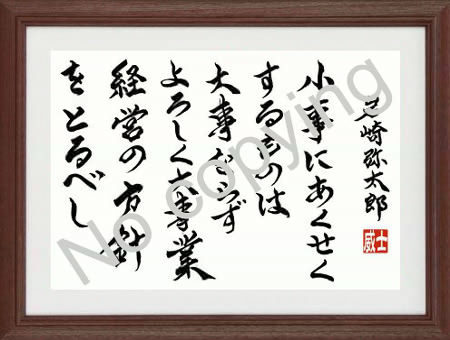 岩崎弥太郎
士威
小事にあくせく
するものは
大事ならず
よろしく大事業
経営の方針
をとるべし
No copying